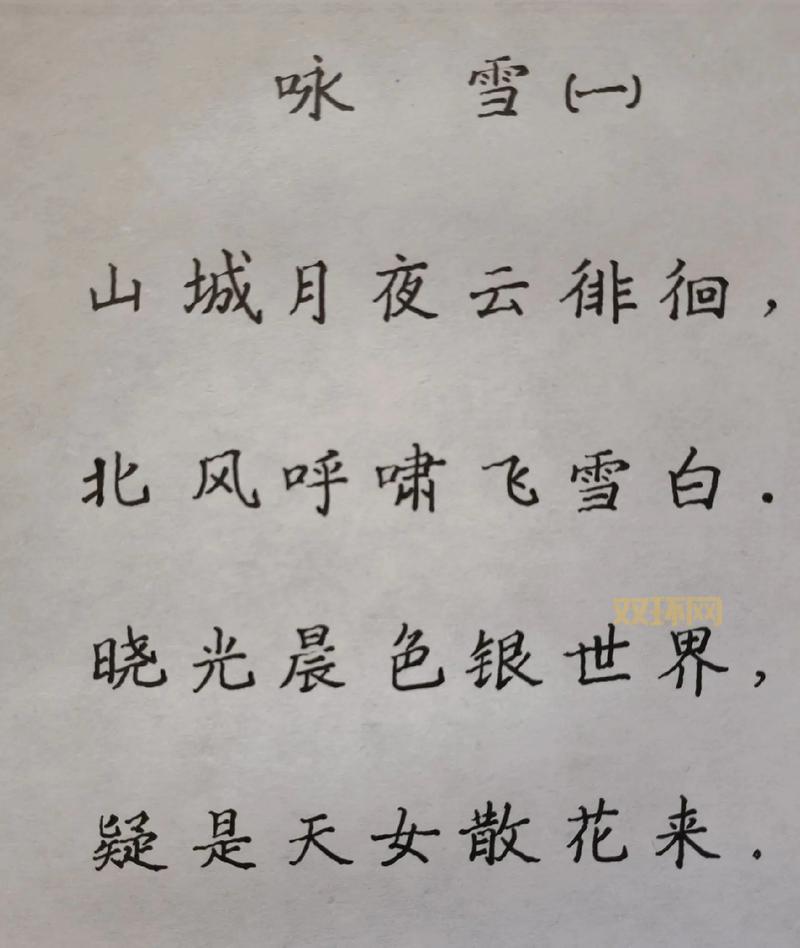 咏 雪(一)
山城月夜云徘徊，
北风呼啸飞雪白.
双环网
晓光晨色银世界，
疑是天女散花来.